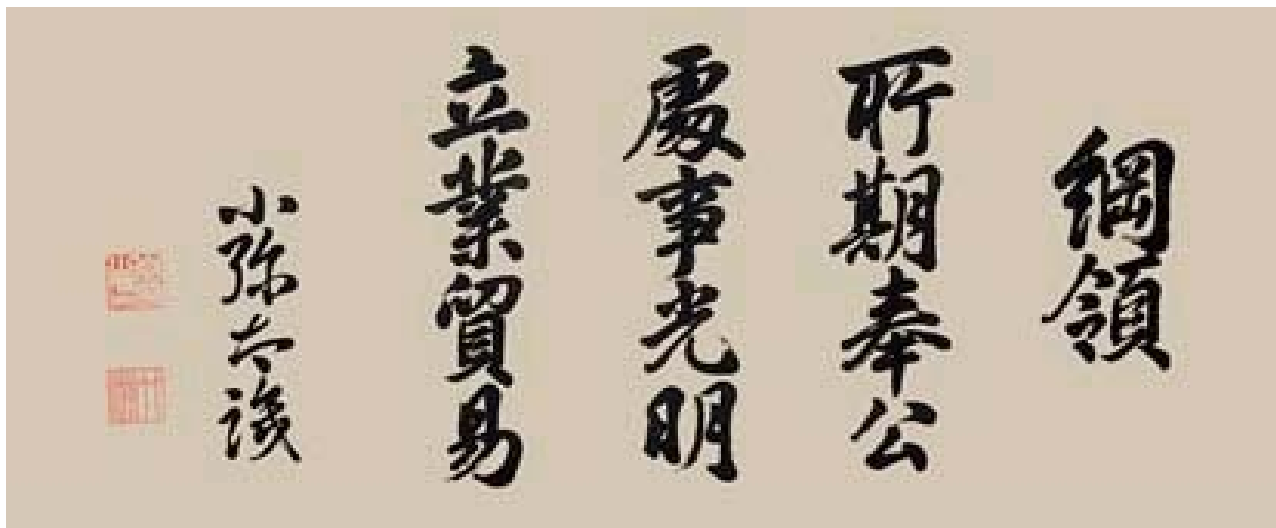 綱領
所期奉公
處事光明
立業貿易
小弥太謹